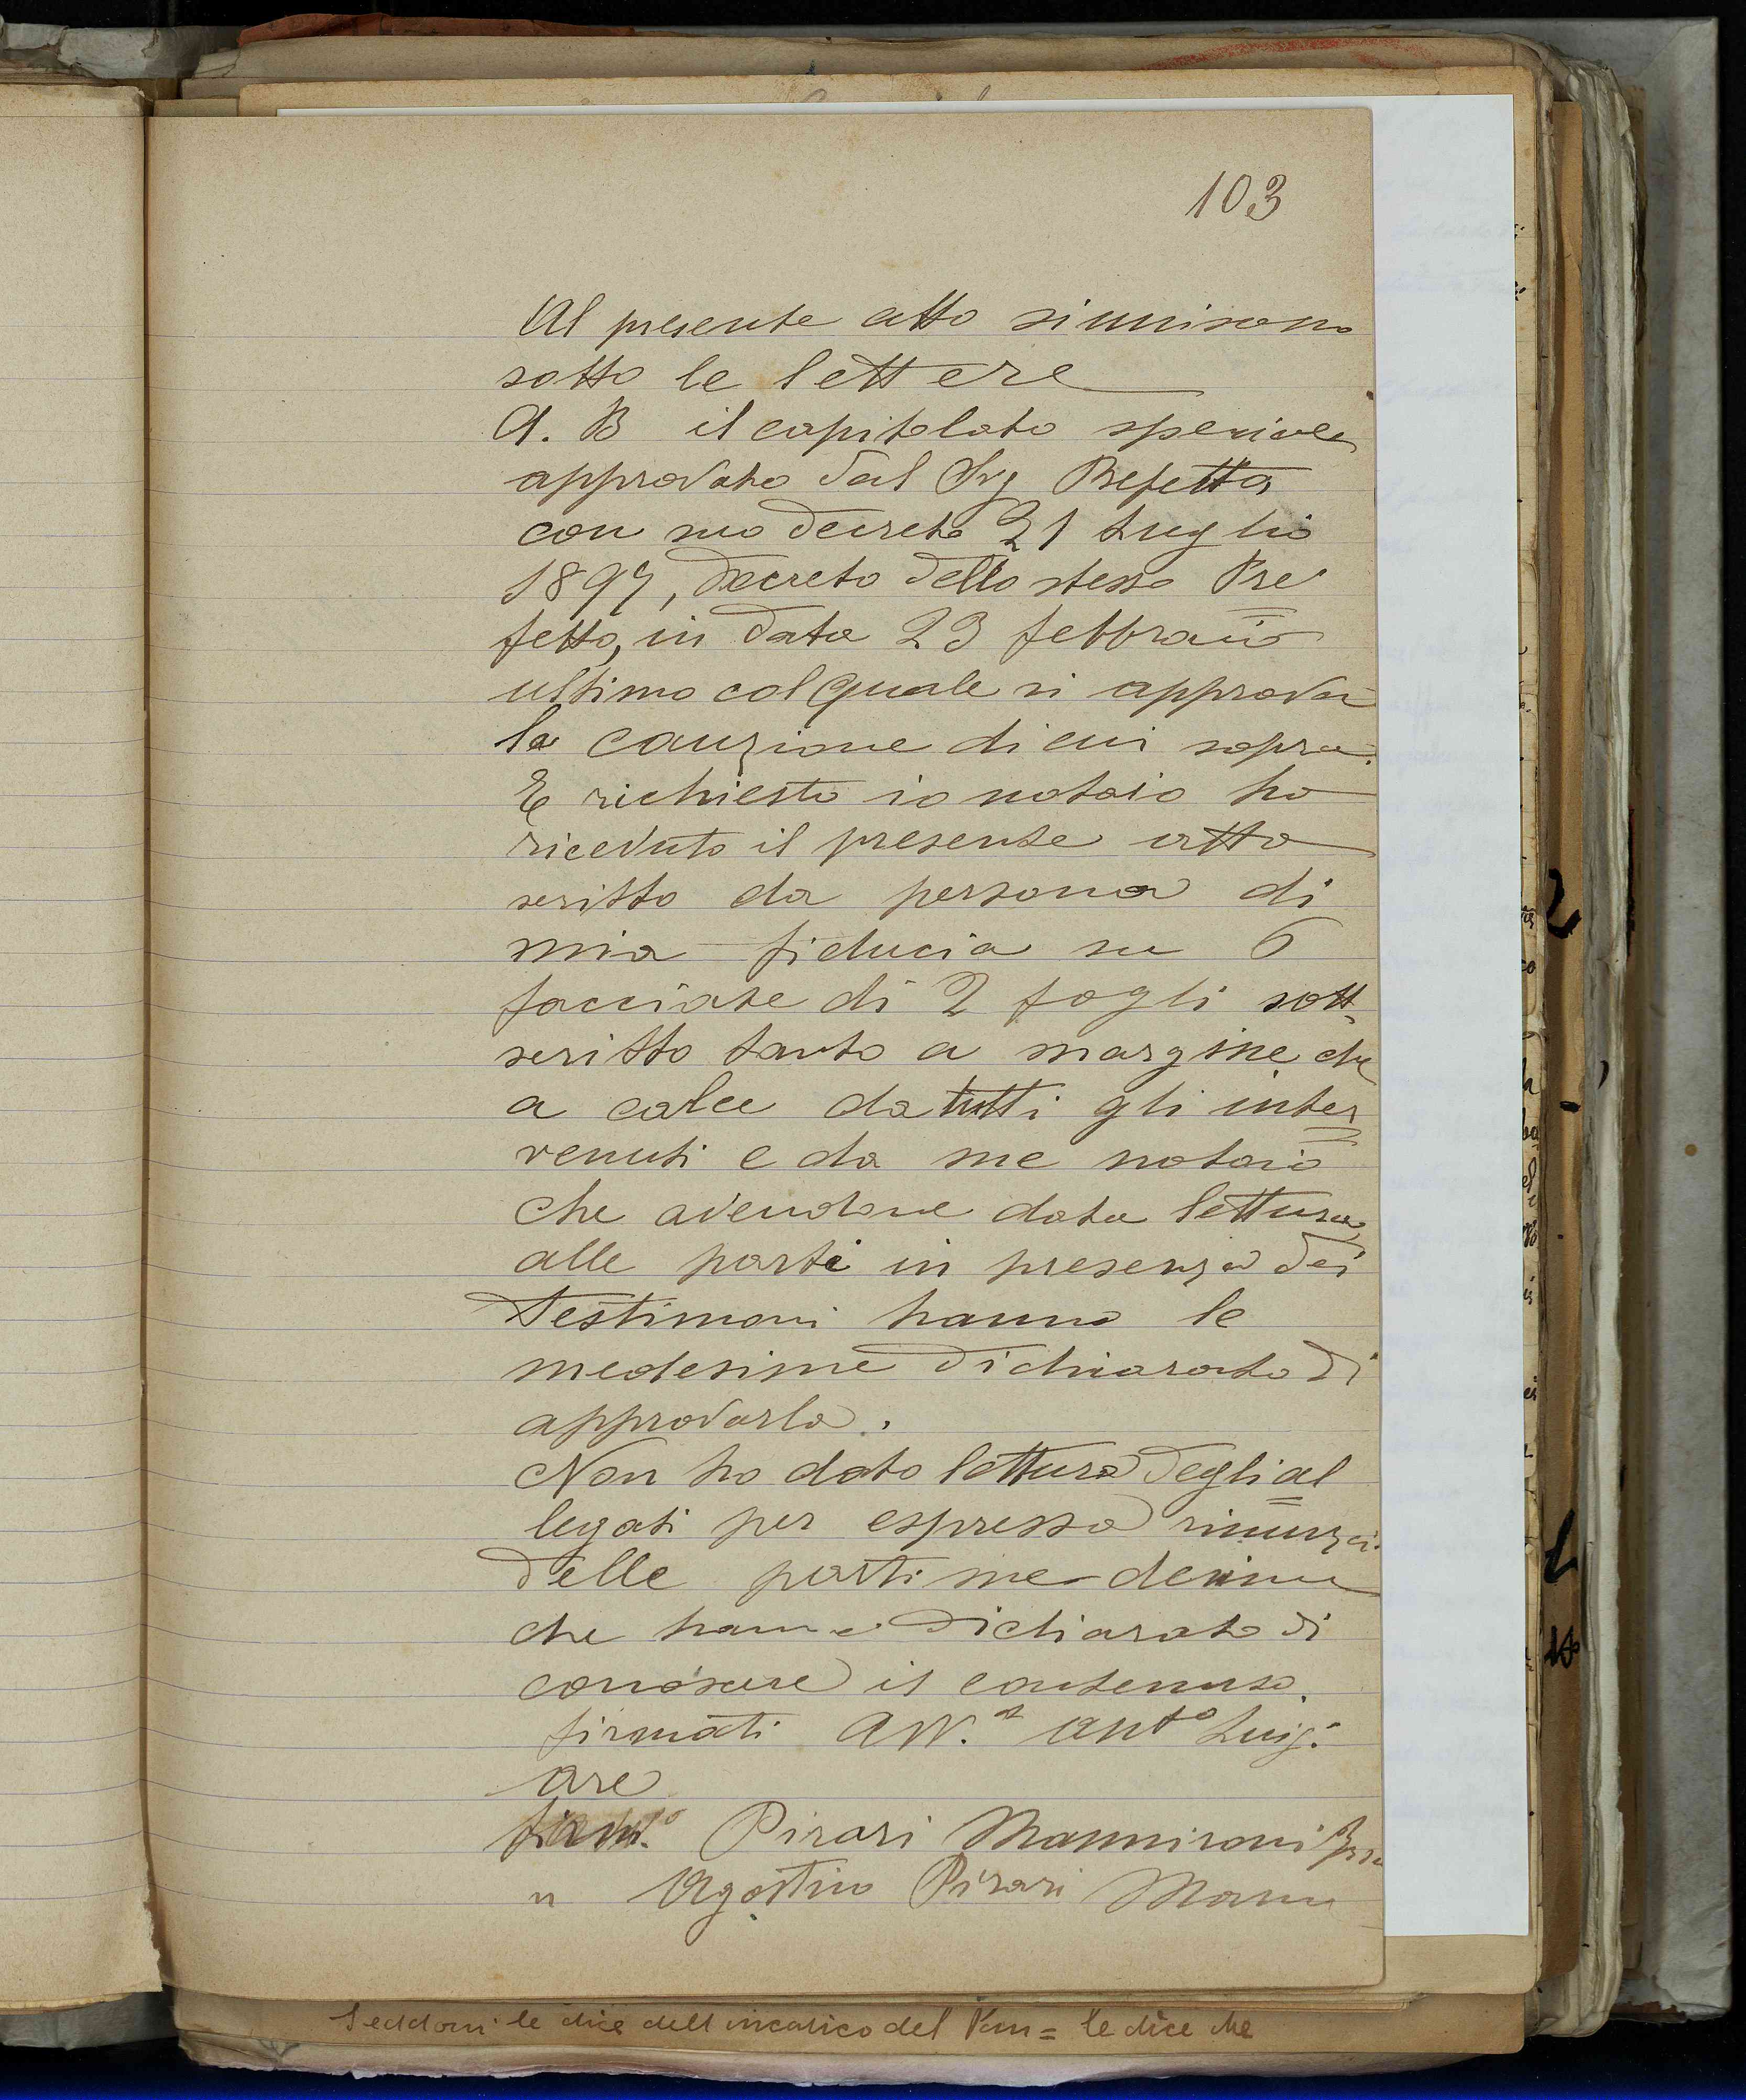 103
Al presente atto si uniscono
sotto le lettere
A. B il capitolato speciale
approvato dal Sig Prefetto
con suo decreto 21 Luglio
1897, decreto dello stesso Pre
fetto, in data 23 febbraio
ultimo col quale si approva
la cauzione di cui sopra.
E richiesto io notaio ho
ricevuto il presente atto
scritto da persona di
mia fiducia su 6
facciate di 2 fogli sott
scritto tanto a margine che
a calce da tutti gli inter
venuti e da me notaio
che avendone data lettura
alle parti in presenza dei
testimoni hanno le
medesime dichiarato di
approvarlo.
Non ho dato lettura degli al
legati per espressa rinunzia
delle parti medesime
che hanno dichiarato di
conoscere il contenuto.
firmati Avv.to Anto Luigi
Are
Pirari Mannironi
" Agostino Pirari Mann
le dice dell incarico del = le dice che